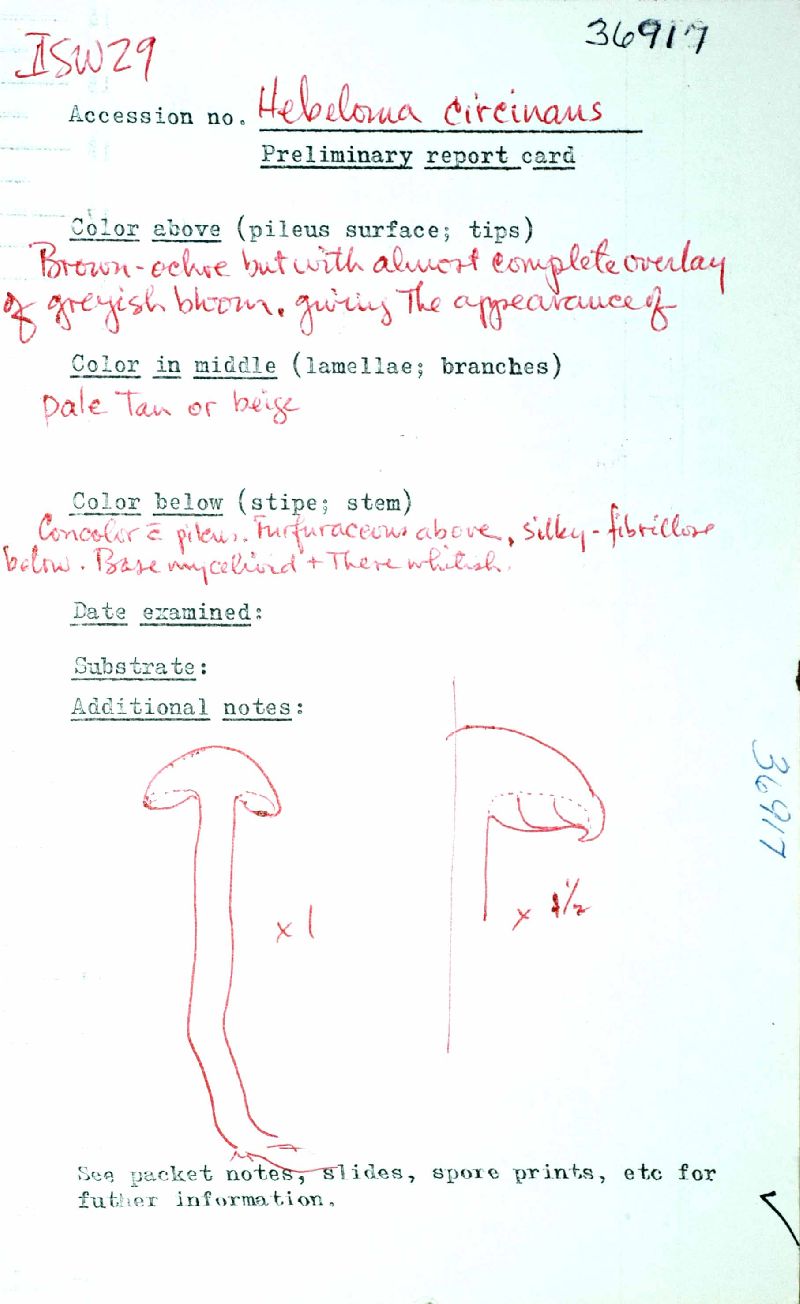 36917
ISW29
Accession no. Hebeloma circinans
Preliminary report card
Color above (pileus surface; tips)
Brown-ochre but with almost complete overlay
of greyish bloom, giving the appearance of
Color in middle (lamellae; branches)
pale tan or beige
Color below (stipe; stem)
Concolor c̄ pileus. Furfuraceous above, silky-fibrillose
below. Base mycelioid + there whitish.
Date examined:
Substrate:
Additional notes:
36917
x 1
x 1/2
See packet notes, slides, spore prints, etc for
futher information.